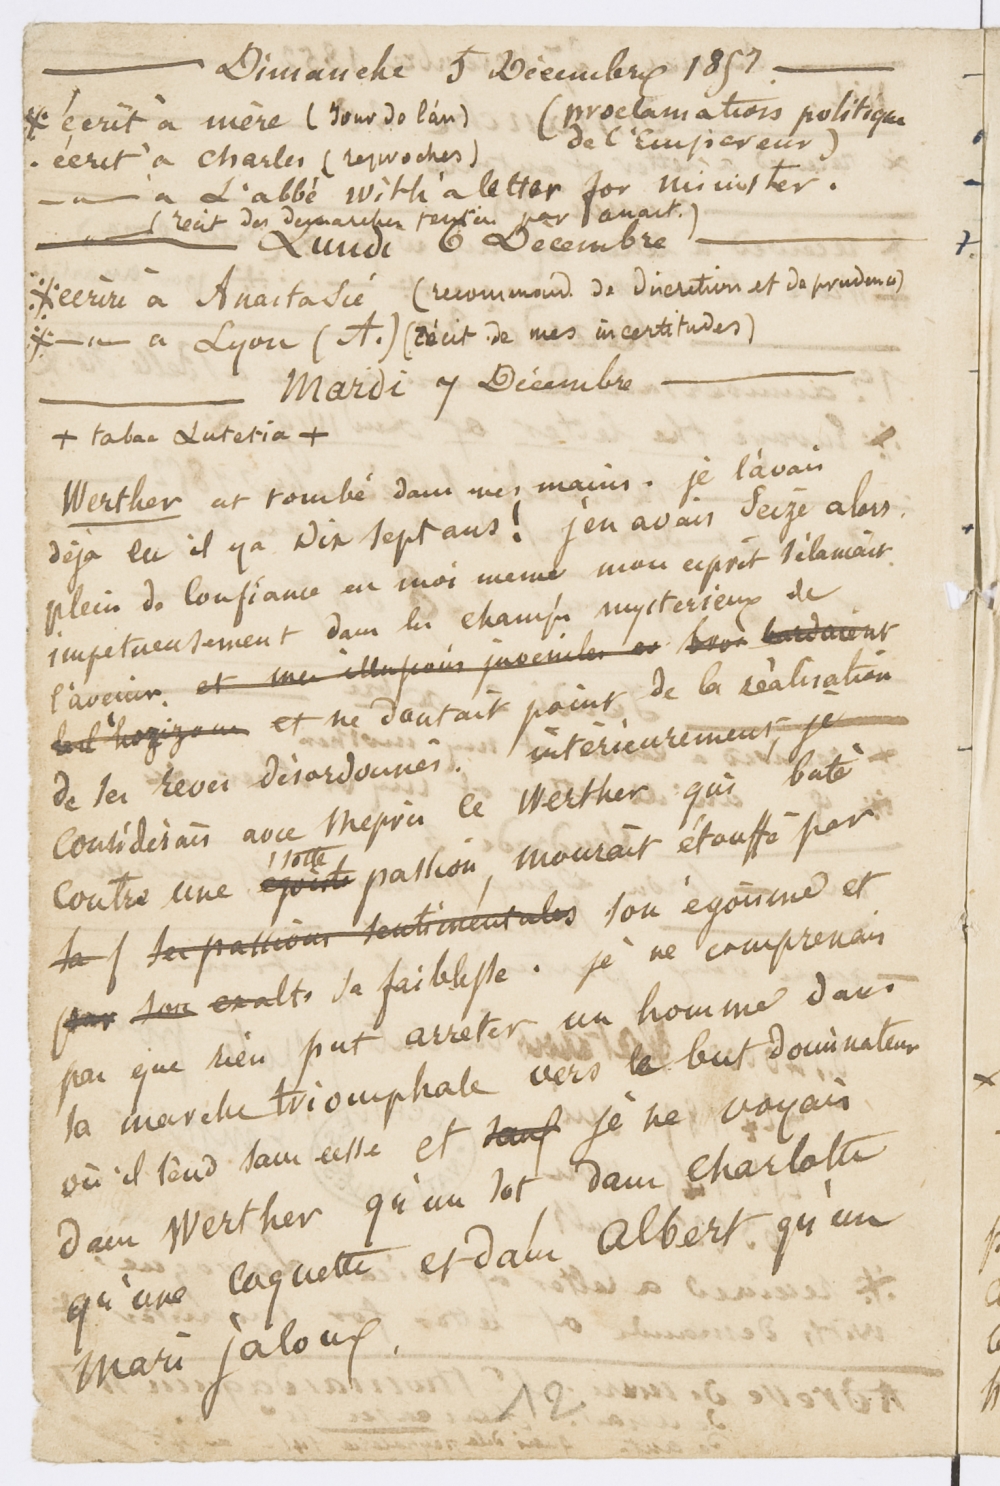 Dimanche 5 Décembre 1857
* écrit à mère (Jour de l'an) (proclamation politique
de l'Empereur)
. écrit à Charles (reproches)
—〃— à L'abbé with a letter for minister.
(récit des demarches tentées par anast.)
Lundi 6 Décembre
* ecrire à Anastasié (recommand. de discretion et de prudence)
* —〃— à Lyon (A.) (récit de mes incertitudes)
Mardi 7 Décembre
+ tabac Lutetia +
Werther est tombé dans mes mains. je l'avais
déjà lu il y a Dix sept ans! j'en avais Seize alors.
plein de Confiance en moi meme mon esprit s'élançait
impetueusement dans les champs mysterieux de
l'avenir. et mes illusions juvéniles en bordaient
l'horizon et ne doutait point de la réalisation
de ses rêves désordonnés. intérieurement, je
Considérais avec mépris ce Werther qui buté
Contre une égoiste sotte passion, mourait étouffé par
sa f ses passions sentimentales son égoïsme et
par son exalt. sa faiblesse. je ne comprenais
pas que rien put arreter un homme dans
sa marche triomphale vers le but dominateur
où il tend sans cesse et sauf je ne voyais
dans Werther qu'un sot, dans Charlotte
qu'une Coquette et dans Albert qu'un
mari jaloux.
12